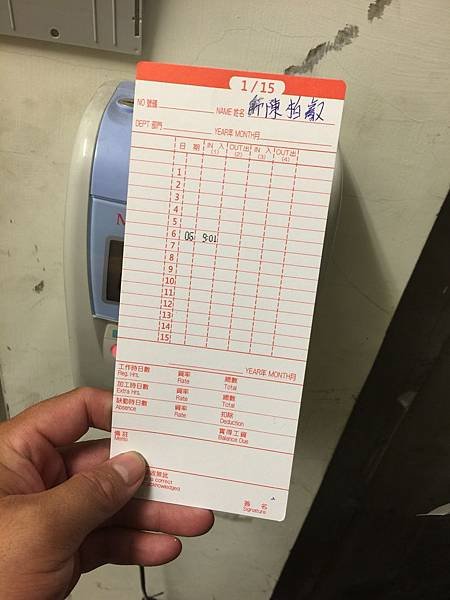 1/15
NO 號碼 NAME 姓名 新陳柏叡
DEPT 部門 YEAR年 MONTH月
日 期 IN 入 (1) OUT出 (2) IN 入 (3) OUT出 (4)
1
2
3
4
5
6 06 9:01
7
8
9
10
11
12
13
14
15
YEAR年 MONTH月
工作時日數 資率 總數
Reg. Hrs. Rate Total
加工時日數 資率 總數
Extra Hrs. Rate Total
缺勤時日數 資率 扣除
Absence Rate Deduction
備註 實得工資
Memo Balance Due
correct
簽 名
Signature